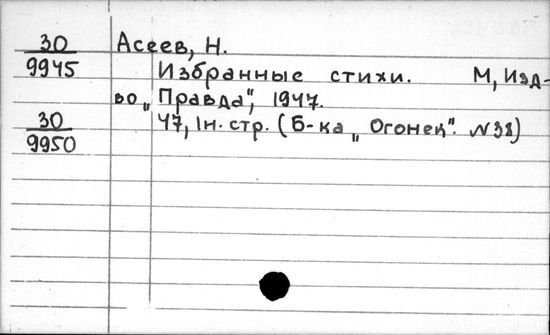 30 Асеев, Н.
9945 Избранные стихи. М, Изд-
во „Правда", 1947.
30 47, Iн. стр. (Б-ка „Огонек". N38)
9950